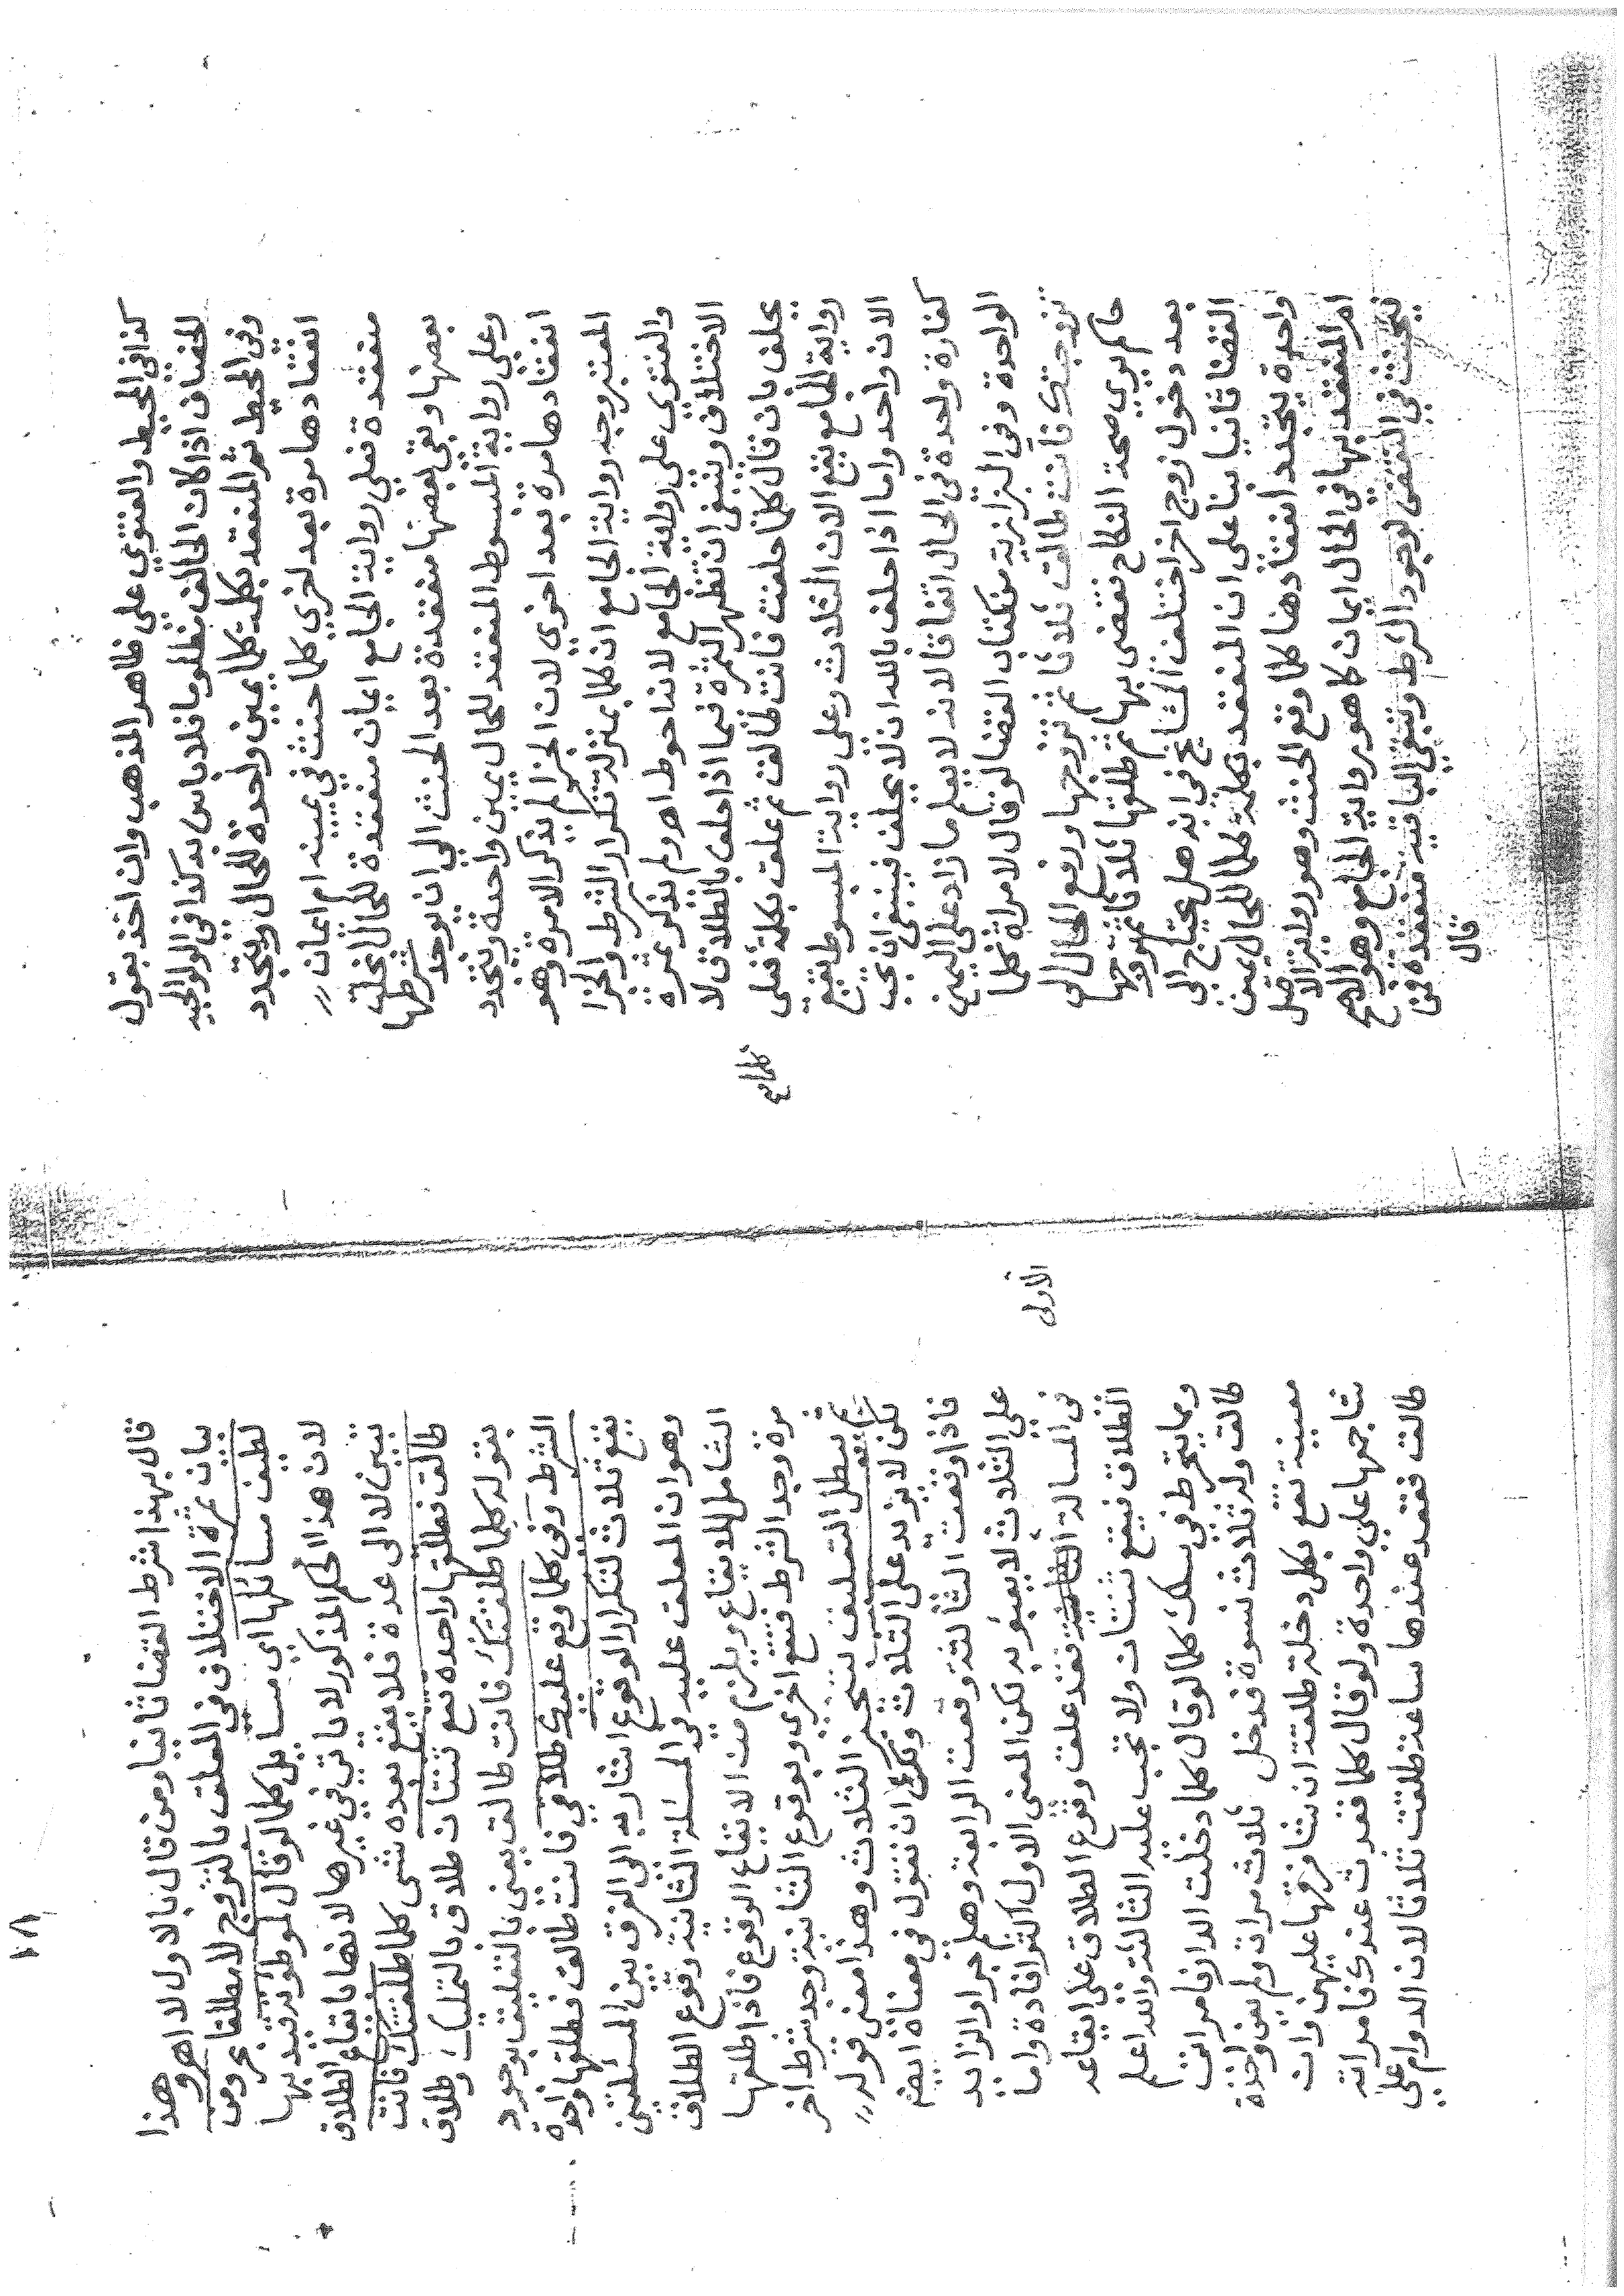 كذا في المحيط والفتوي على ظاهر المذهب وان اخذ بقول
الخصاف اذا كان الحالف مظلوما فلا باس به كذا في الولوالجيه
وفي المحيط ثم المنعقد بكلمة كلما يمين واحدة للحال ويتجدد
انعقادها مرة بعد اخري كلما حنث في يمينه ام ايمان
منعقدة فعلي رواية الجامع ايمان منعقدة للحال انحلت
بعضها وبقي بعضها منعقدة بعد الحنث الي ان يوجد شرطها
وعلي رواية المبسوط المنعقد للحال يمين واحدة ويتجدد
انعقادها مرة بعد اخري لان الجزا لم يذكر الا مرة وهو
المعتبر وجه رواية الجامع ان كلما بمنزلة تكرار الشرط والجزا
والفتوي على رواية الجامع لانه احوط اهـ ولم يذكر ثمرة
الاختلاف وينبغي ان تظهر الثمرة فيما اذا حلف بالطلاق لا
يحلف بان قال كلما حلفت فانت طالق ثم علق بكلمة فعلى
رواية الجامع يقع الان الثلاث وعلى رواية المبسوط يقع
الان واحد واما اذا حلف بالله ان لا يحلف فينبغي ان يجب
كفارة واحدة في الحال اتفاقا لانه لا يعلم ما زاد على اليمين
الواحدة وفي البزازية من كتاب القضا لو قال لامراة كلما
تزوجتك فانت طالق ثلاثا ثم تزوجها ورفع الحال الى
حاكم يري صحة النكاح فقضى بها ثم طلقها ثلاثا ثم تزوجها
بعد دخول زوج اخر اختلف المشايخ في انه هل يحتاج الى
القضا ثانيا بنا على ان المنعقد بكلمة كلما للحال يمين
واحدة يتجدد انعقادها كلما وقع الحنث وهو رواية الاصل
ام المنعقد بها في الحال ايمان كما هو رواية الجامع وهو الاصح
فيحنث في البعض لوجود الشرط وتبقي الباقيه منعقدة فمن
قال
قال بهذا شرط القضا ثانيا ومن قال بالاول لا اهـ وهذا
بيان ثمرة الاختلاف في المعلق بالتزوج لا مطلقا ومن
لطيف مسائلها اي مسايل كلما لو قال لموطوته قيد بها
لان هذا الحكم المذكور لا ياتي في غيرها لانها بايقاع الطلاق
تبين لا الى عدة فلا يقع بعده شى كلما طلقتك فانت
طالق فطلقها واحده يقع ثنتان طلاق بالتمليك وطلاق
بقوله كلما طلقتك فانت طالق يعني بالتعليق بوجود
الشرط وفي كلما وقع عليك طلاقي فانت طالق فطلقها واحدة
يقع ثلاث لتكرار الوقوع اشار به الى الفرق بين المسئلتين
وهو ان المعلق عليه في المسئلة الثانية وقوع الطلاق
الشامل للايقاع ويلزم من الايقاع الوقوع فاذا طلقها
مرة وجد الشرط فتقع اخري وبوقوع الثانية وجد شرط اخر
ثم يبطل التعليق بتنجيز الثلاث وهذا معني قوله
لكن لا يزيد على الثلاث ويمكن ان نقول في معناه ايضا
فاذا وقعت الثالثة وقعت الرابعة وهلم جرا والزايد
على الثلاث لا يعبؤ به لكن المعني الاول اكثر افادة واما
في المسالة الاولى فقد علق وقوع الطلاق على ايقاعه
الطلاق فيقع ثنتان ولا تجب عليه الثالثة والله اعلم
ومما ينخرط في سلك كلما لو قال كلما دخلت الدار فامراتي
طالق وله ثلاث نسوة فدخل ثلاث مرات ولم يعن واحدة
معينة تقع بكل دخلة طلقة ان شا فرقها عليهن وان
شا جمعها علي واحدة ولو قال كلما قعدت عندك فامراته
طالق فقعد عندها ساعة طلقت ثلاثا لان الدوام على
١٨